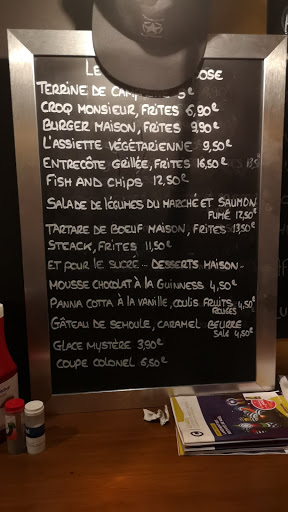 LE OSE
TERRINE DE CAMPAGNE 5€
CROQ MONSIEUR, FRITES 6,90€
BURGER MAISON, FRITES 9,90€
L'ASSIETTE VÉGÉTARIENNE 9,50€
ENTRECÔTE GRILLÉE, FRITES 16,50€
FISH AND CHIPS 12,50€
SALADE DE LÉGUMES DU MARCHÉ ET SAUMON
FUMÉ 17,50€
TARTARE DE BOEUF MAISON, FRITES 13,50€
STEACK, FRITES 11,50€
ET POUR LE SUCRÉ... DESSERTS MAISON-
MOUSSE CHOCOLAT À LA GUINNESS 4,50€
PANNA COTTA À LA VANILLE, COULIS FRUITS 4,50€
ROUGES
GÂTEAU DE SEMOULE, CARAMEL BEURRE
SALÉ 4,50€
GLACE MYSTÈRE 3,90€
COUPE COLONEL 6,50€